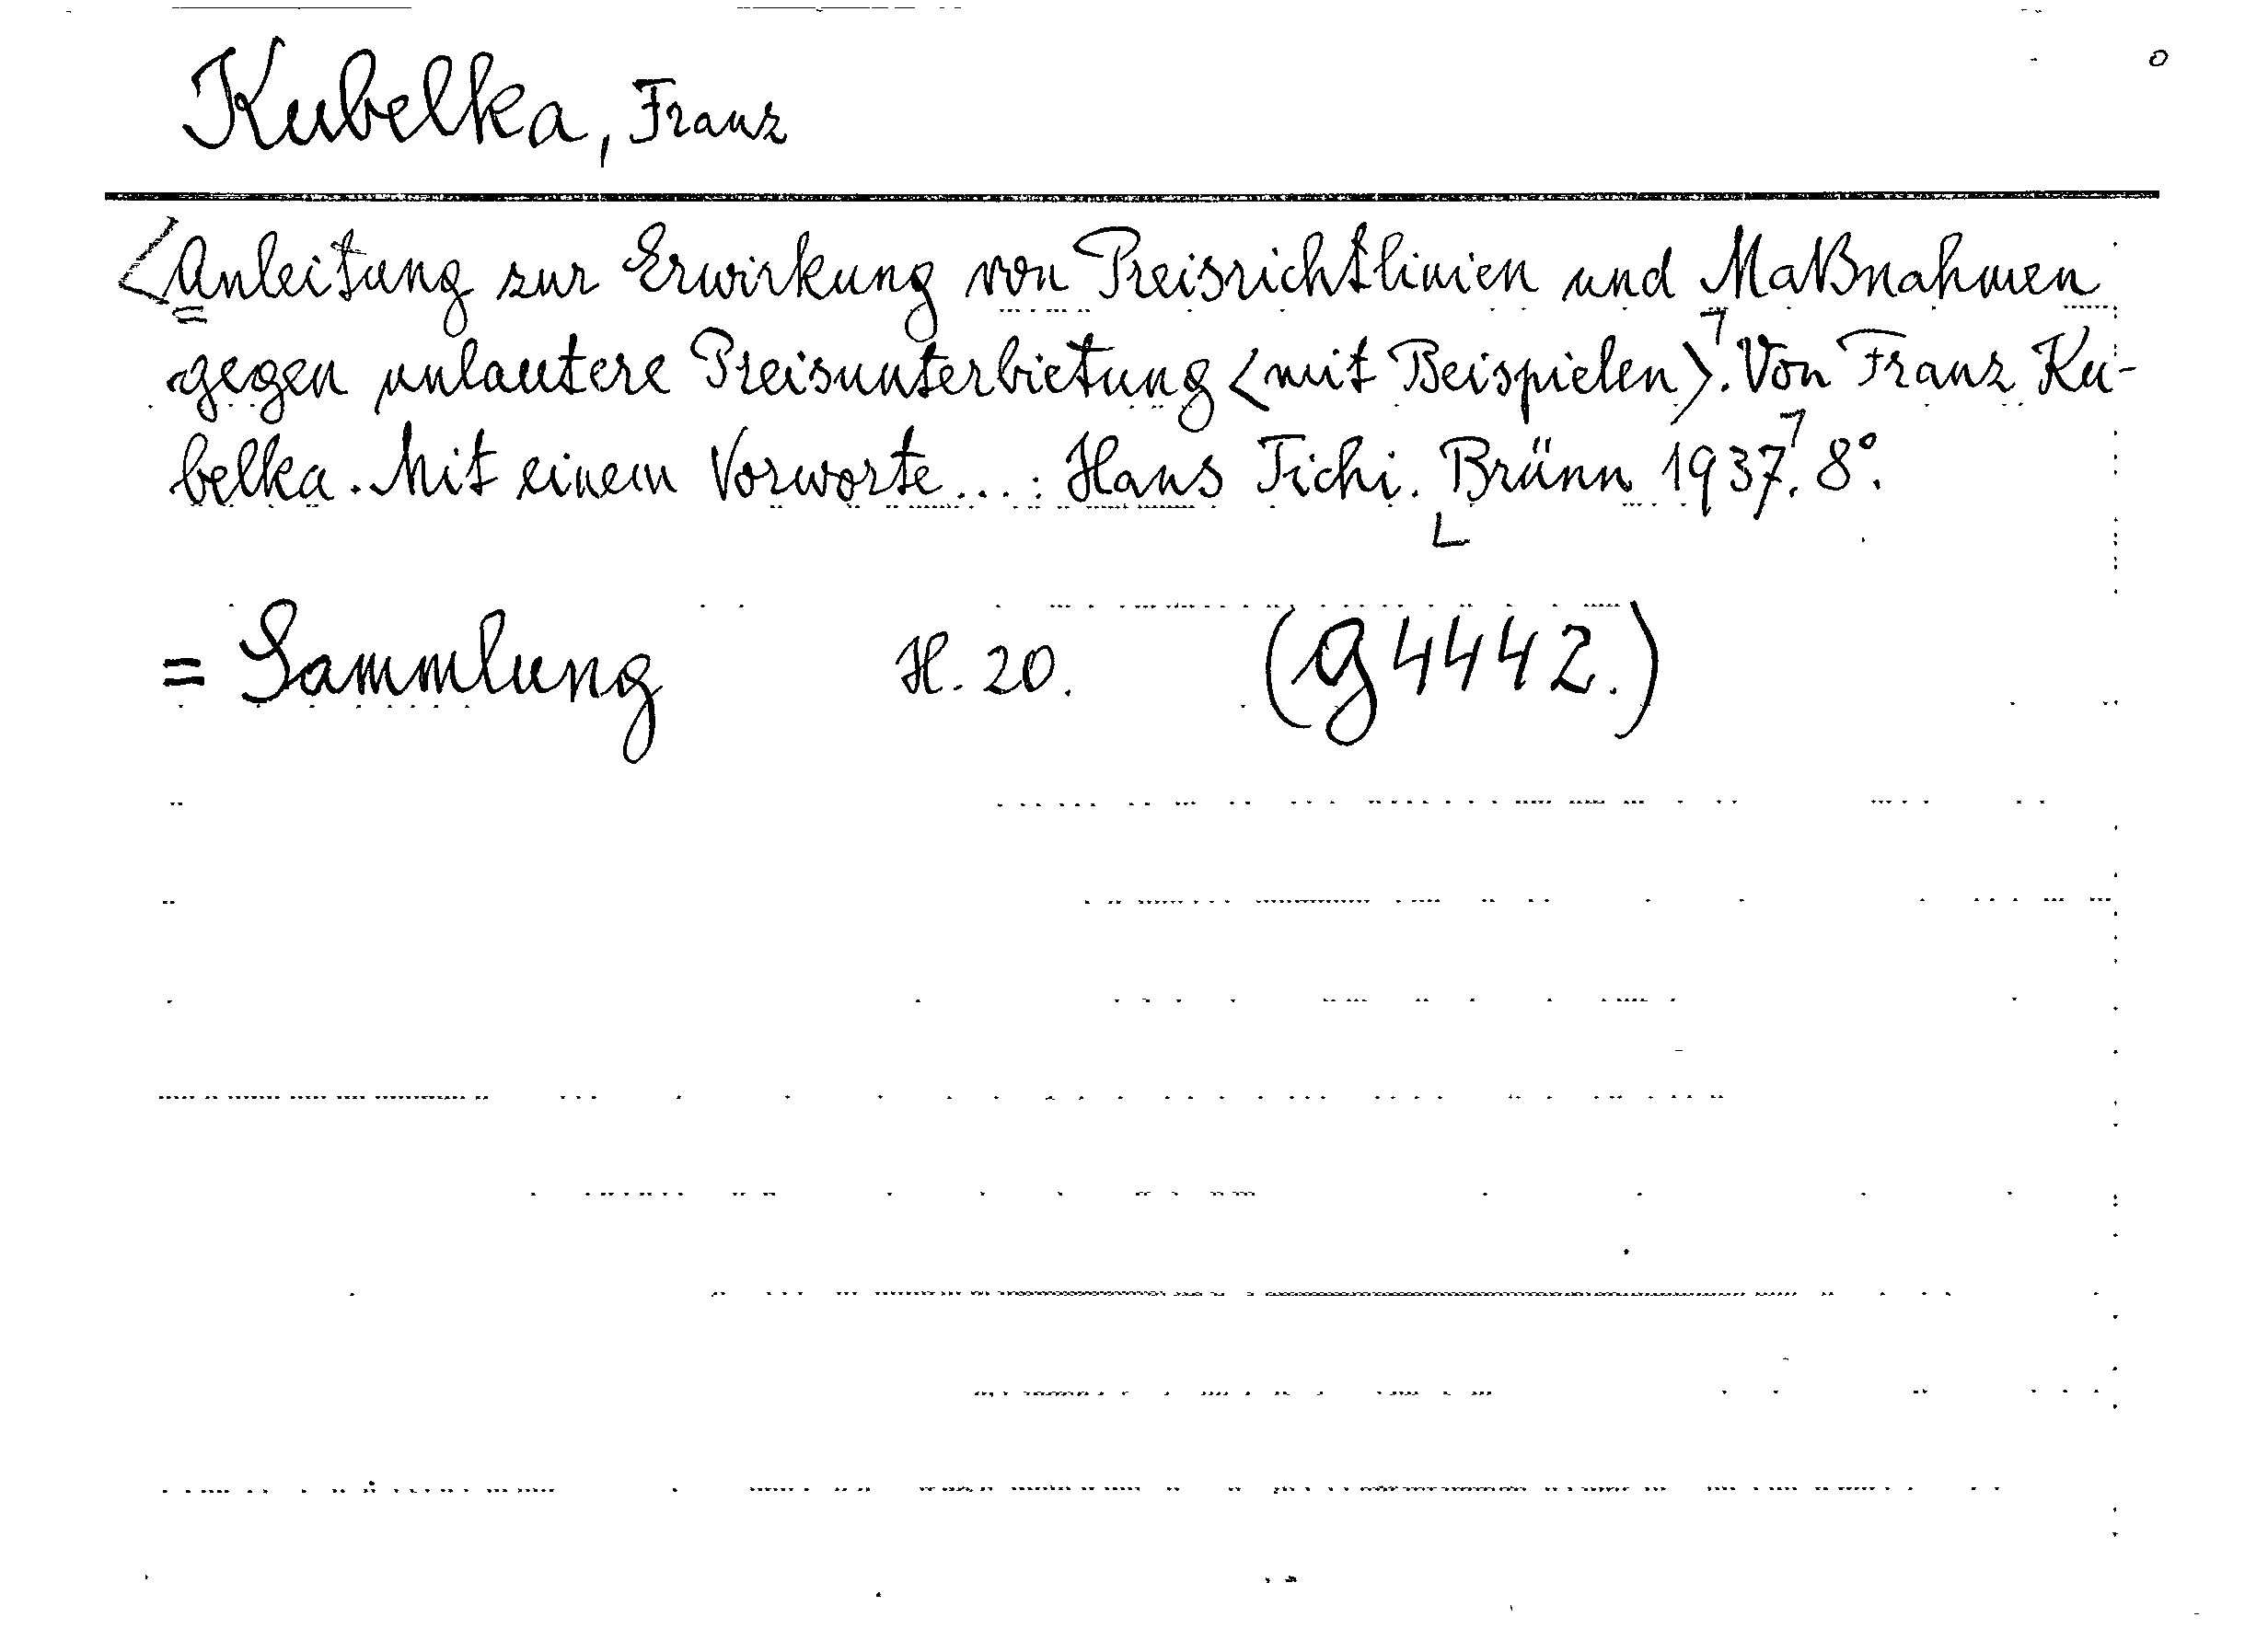 Kubelka, Franz
Anleitung zur Erwirkung von Preisrichtlinien und Maßnahmen
gegen unlautere Preisunterbietung <mit Beispielen>. Von Franz Ku-
belka. Mit einem Vorworte...: Hans Tichi. Brünn 1937. 8°.
= Sammlung H. 20. (g 4442.)